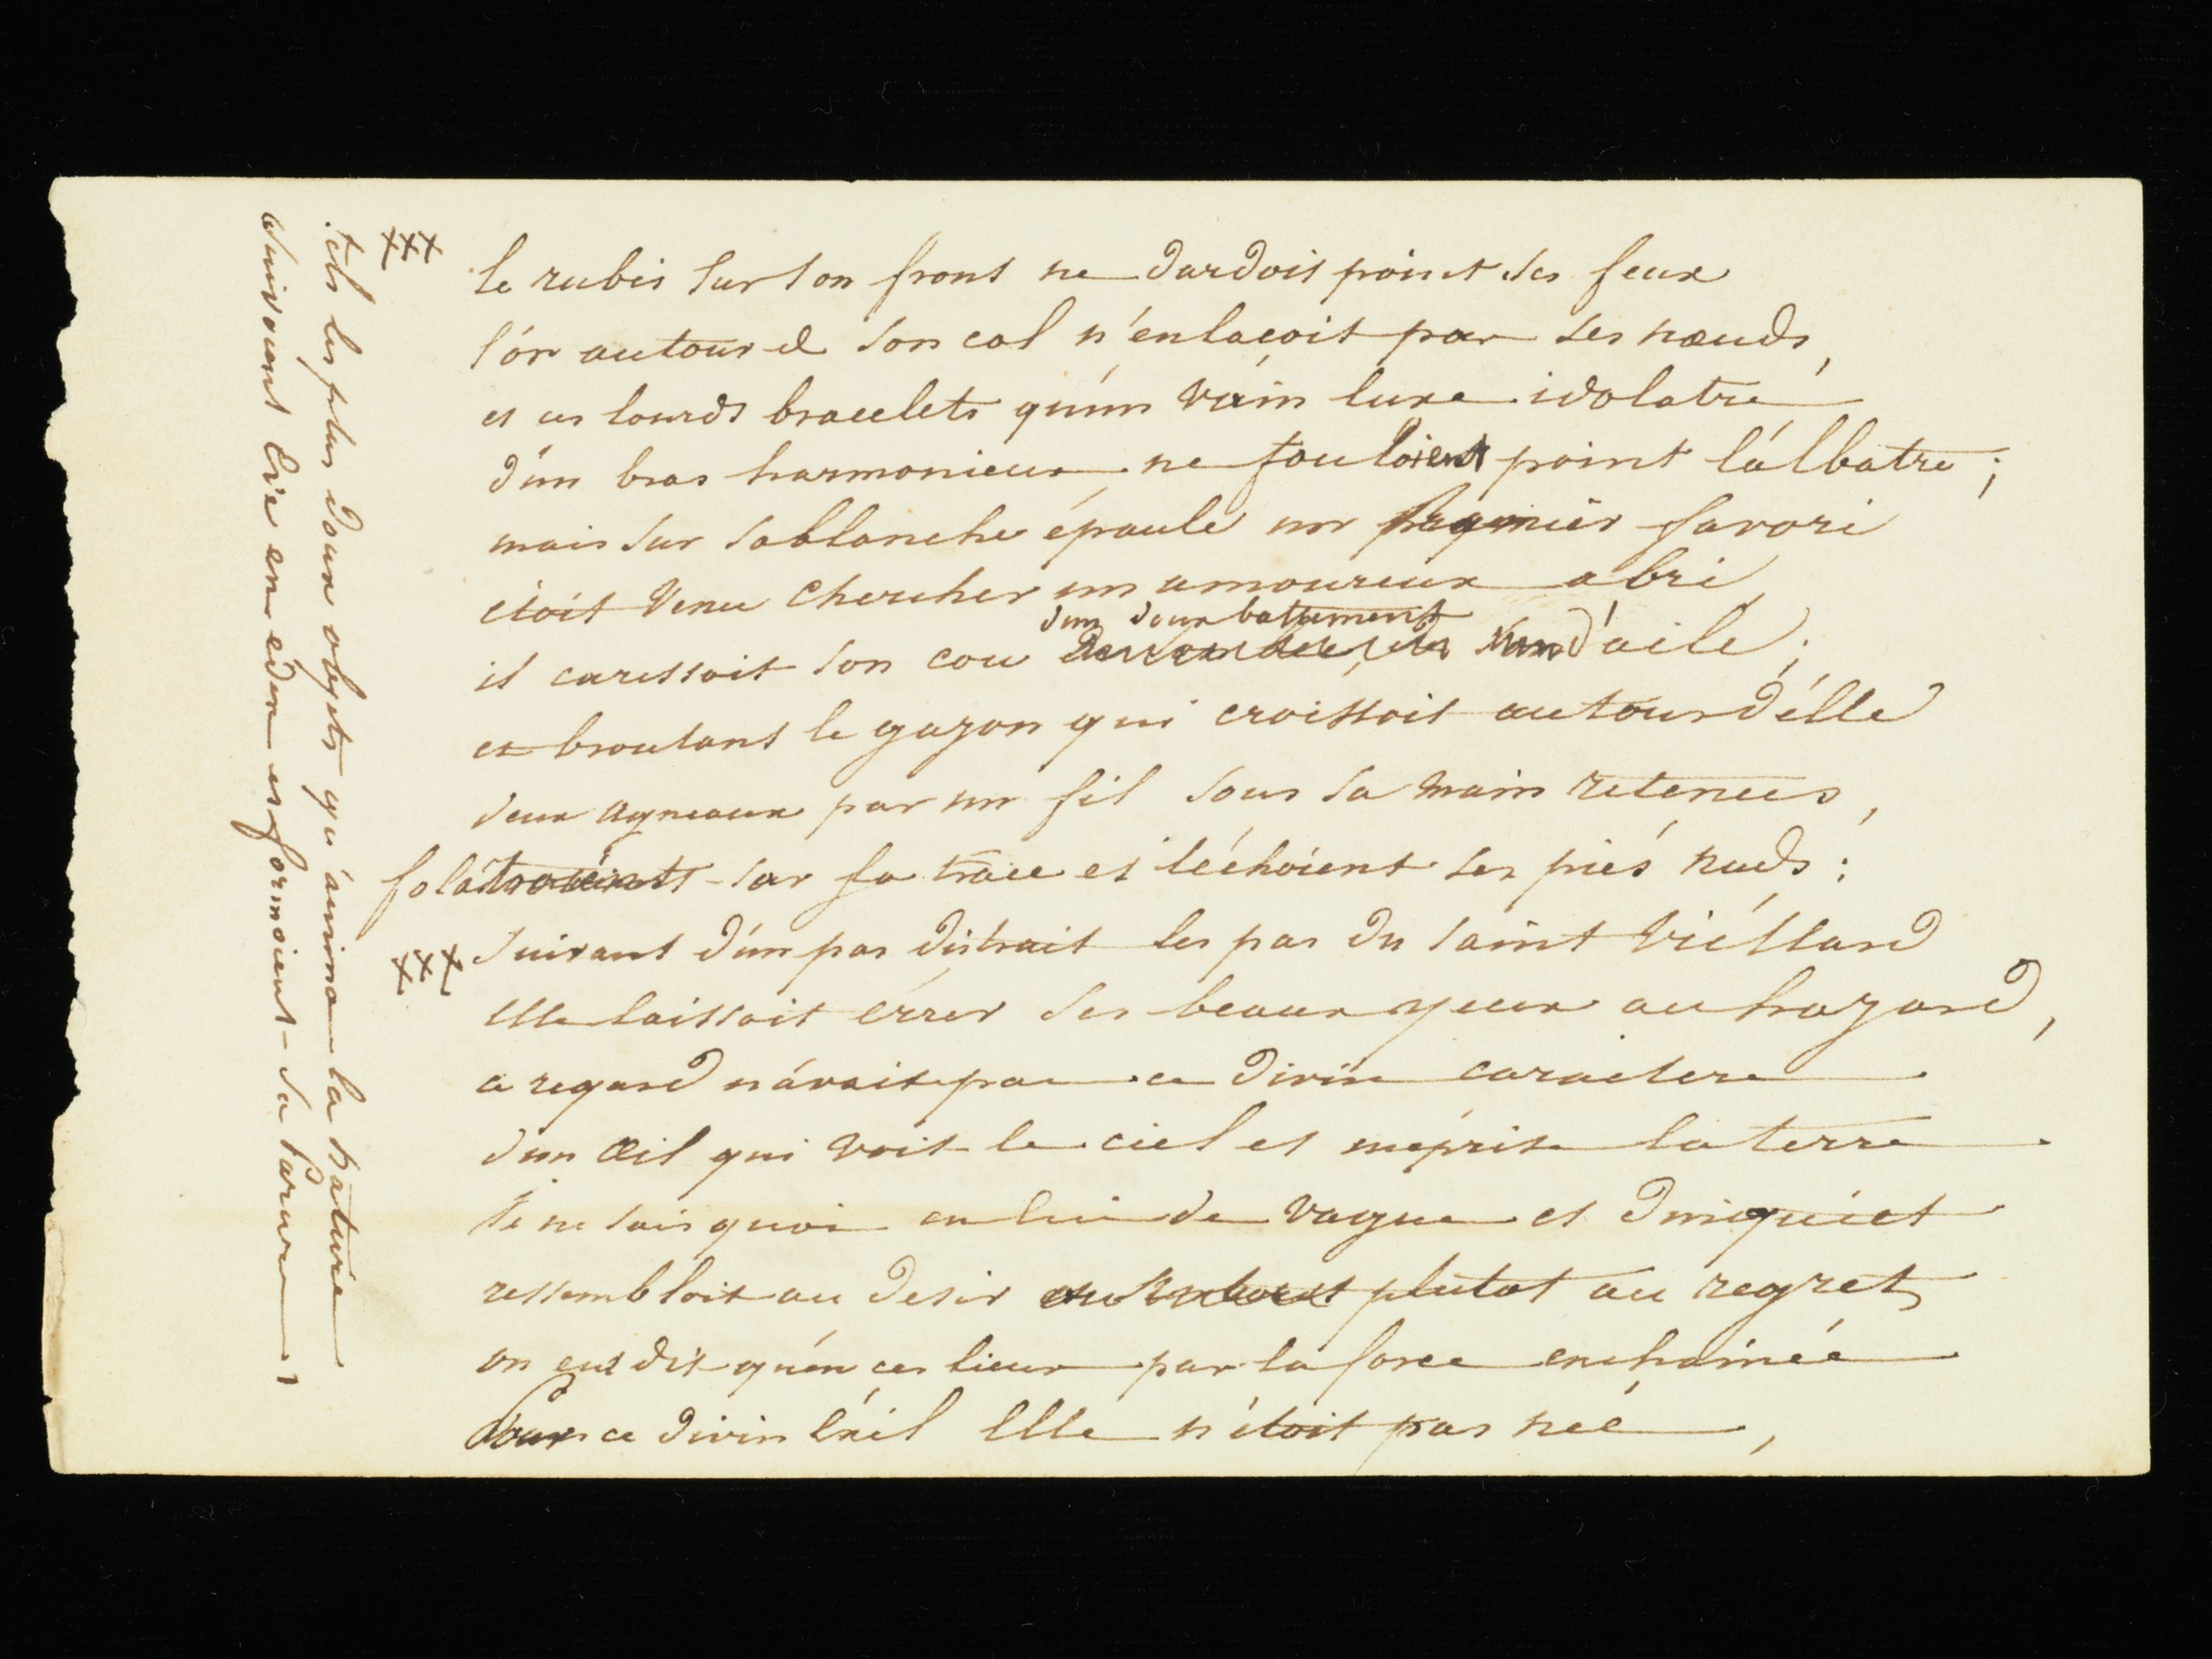 le rubis sur son front ne dardoit point ses feux
l'or autour de son col n'enlaçoit pas ses nœuds,
et ces lourds bracelets qu'un vain luxe idolatre
d'un bras harmonieux ne fouloient point l'albatre ;
mais sur sa blanche épaule un favori
étoit venu chercher un amoureux abri
d'un doux battement
il caressoit son cou d'aile ;
et broutant le gazon qui croissoit autour d'elle
deux agneaux par un fil sous sa main retenus,
folatroient sur sa trace et léchoient ses piés nuds :
xxx suivant d'un pas distrait les pas du saint viellard
elle laissoit errer ses beaux yeux au hazard,
ce regard n'avait pas ce divin caractere
d'un œil qui voit le ciel et méprise la terre
je ne sais quoi en lui de vague et d'inquiet
ressembloit au desir plutot au regret
on eut dit qu'en ces lieux par la force enchainée
Pour ce divin exil elle n'étoit pas née,
xxx tels les plus doux objets qu'anima la nature
suivoient Eve en eden et formoient sa parure,